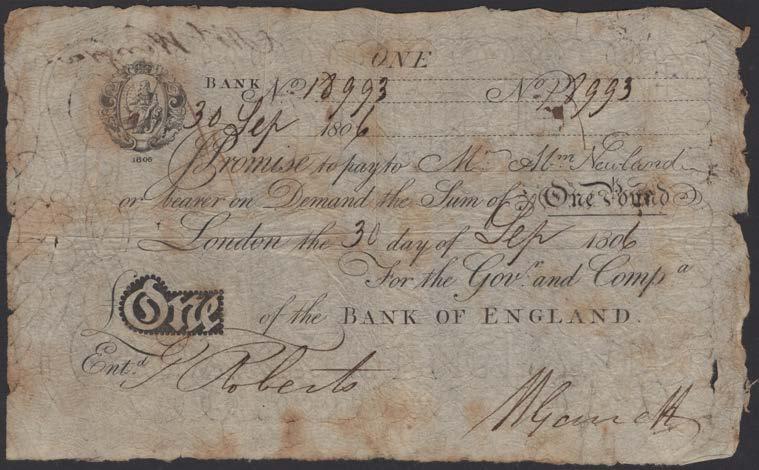 ONE
BANK No 18993 No 18993
30 Sep 1806
1806
I Promise to pay to Mr. Abm Newland
or bearer on Demand the Sum of One Pound
London the 30 day of Sep 1806
For the Govr. and Compa
£One of the BANK OF ENGLAND.
Entd. Roberts